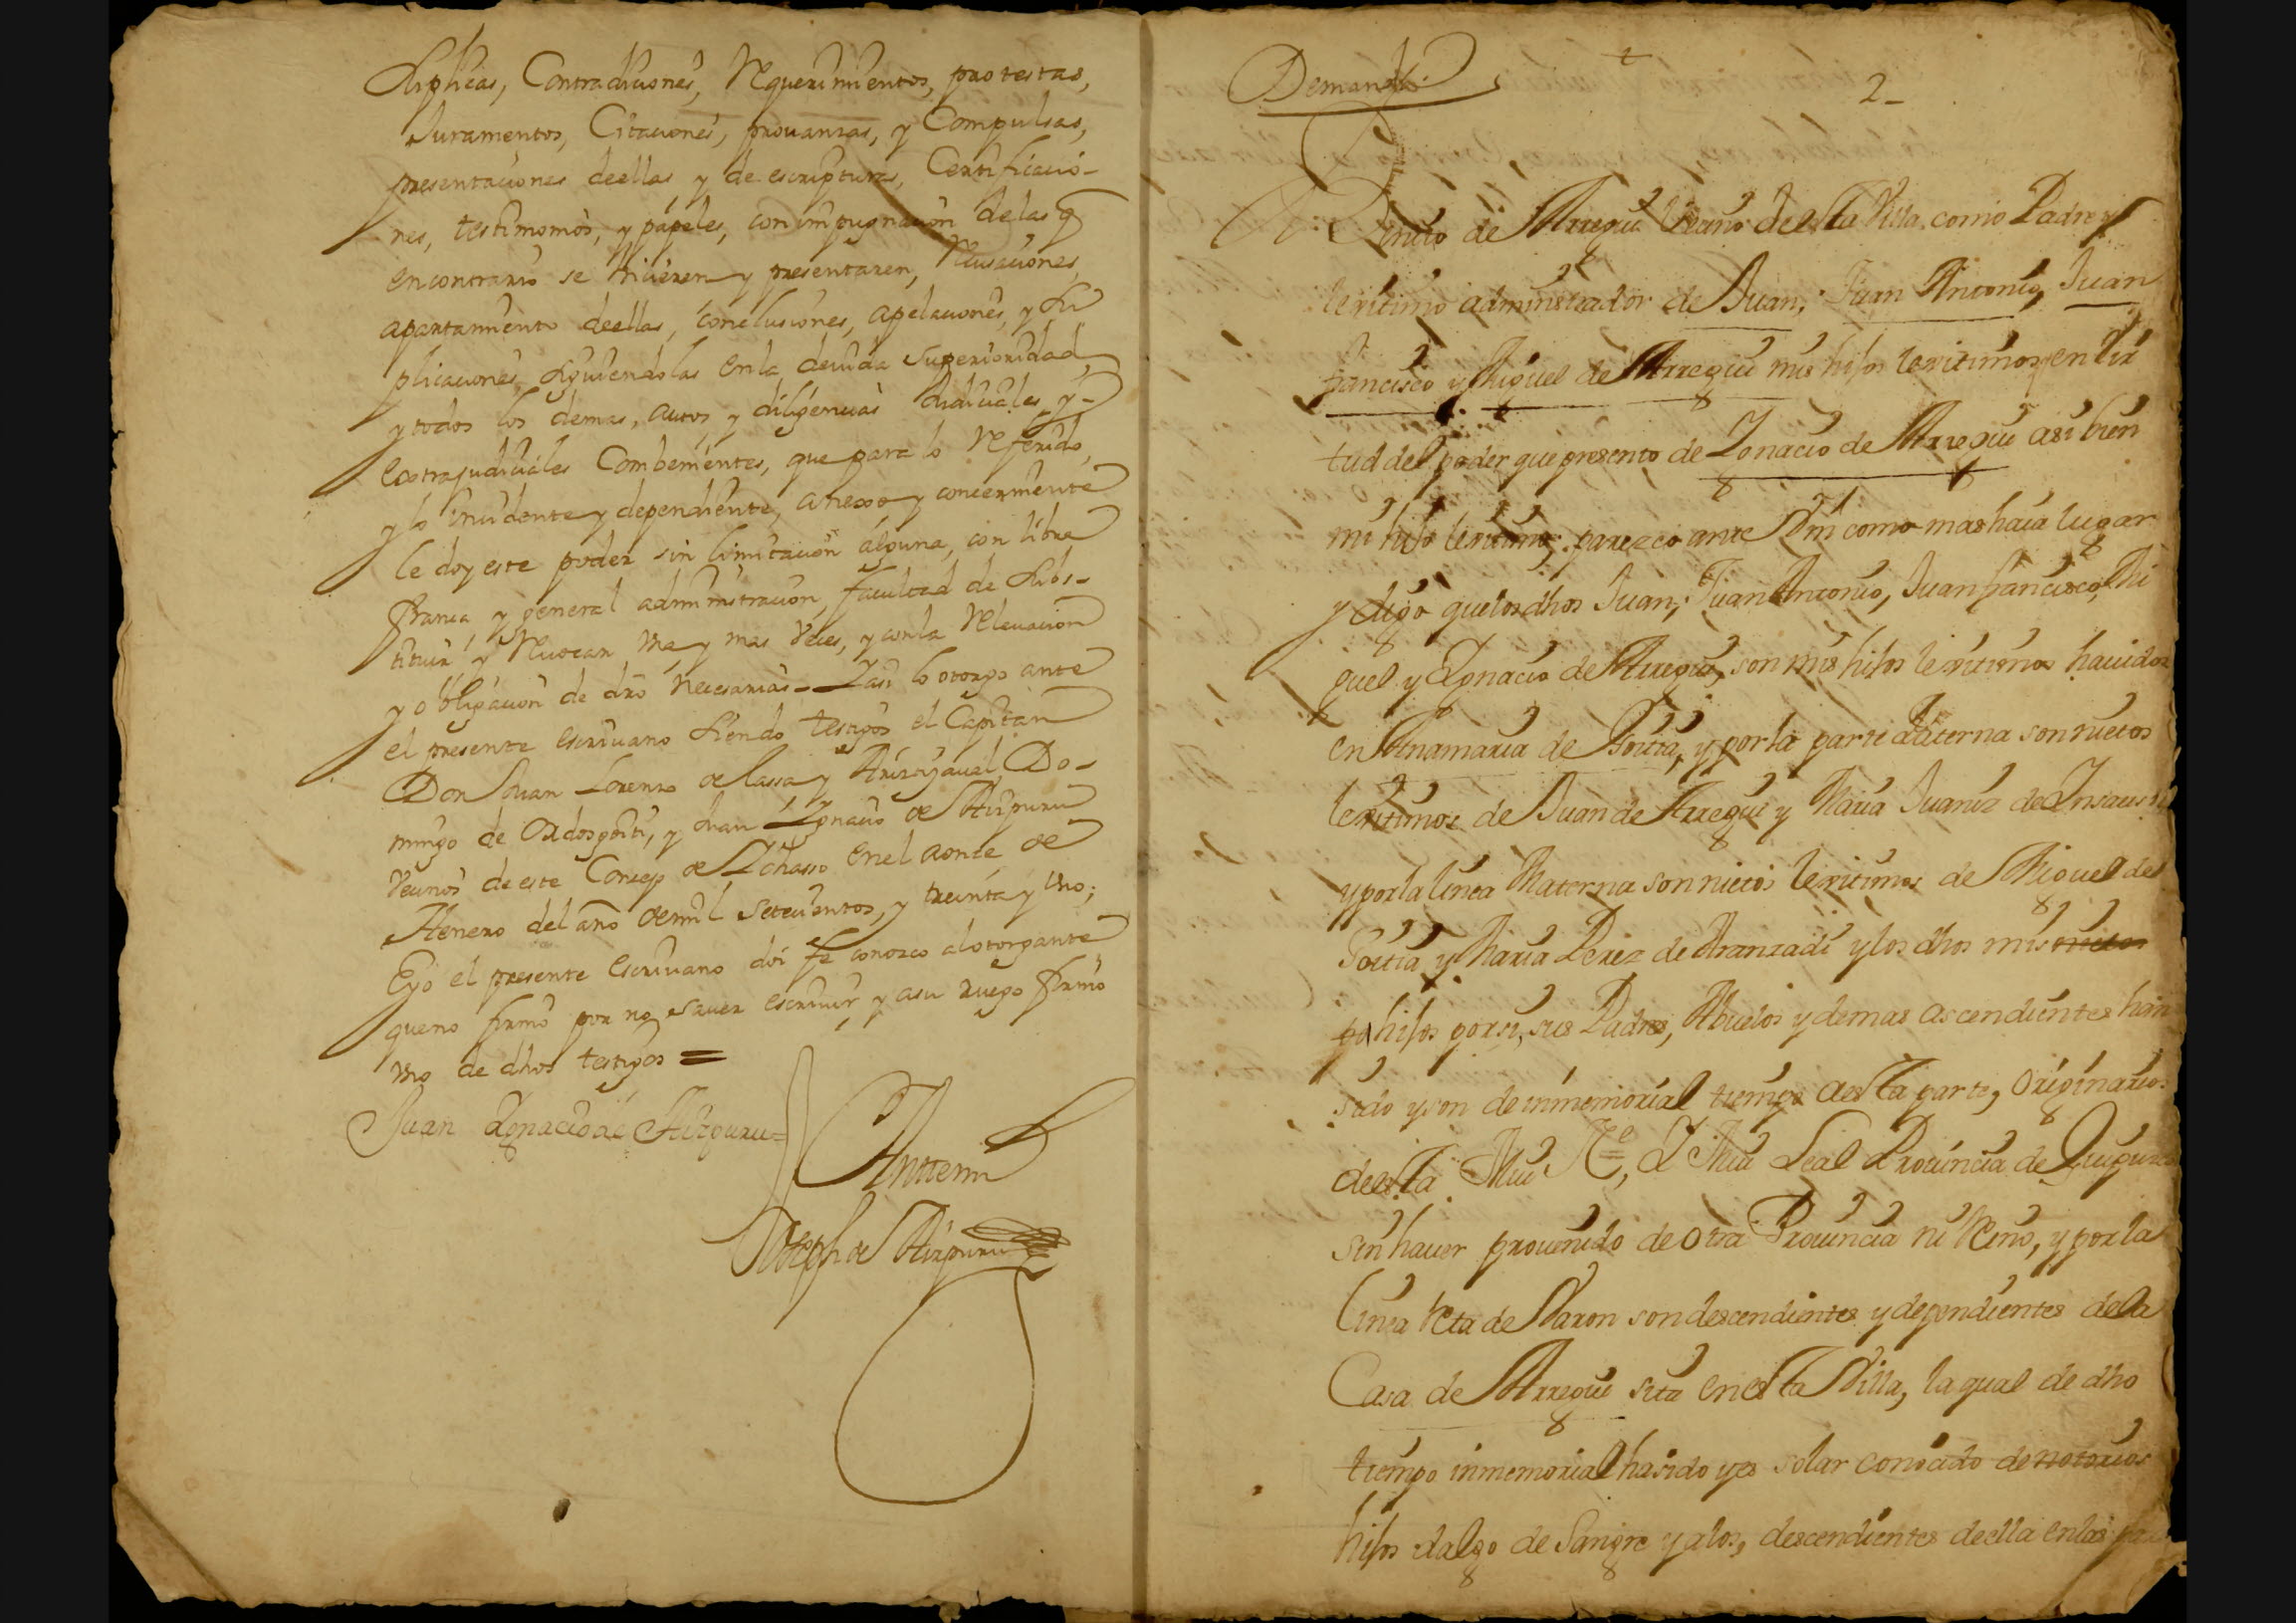 Suplicas, Contradiciones, Requerimientos, protestas,
Juramentos, Citaciones, provanzas, y Compulsas,
presentaciones deellas y de escripturas, Certificacio-
nes, testimonios, y papeles, con impugnacion delas q
encontrario se hicieren y presentaren, Recusaciones,
apartamiento deellas, conclusiones, apelaciones, y Su
plicaciones, siguiendolas enla devida superioridad,
y todos los demas, autos, y diligencias Judiciales, y-
Extrajudiciales Combenientes, que para lo Referido,
y lo incidente y dependiente, anexo y concerniente
le doy este poder sin limitacion alguna, con libre
franca, y general administracion, facultad de Subs-
tituir y Revocar una y mas veces, y conla Relevacion
y obligacion de dro necesarias- Y asi lo otorgo ante
el presente escrivano siendo testigos el Capitan
Don Juan Lorenzo de Lassa y Arizaval, Do-
mingo de Ordosgoiti, y Juan Ignacio de Aizpuru
vecinos de este Concejo de Ichasso en el a onze de
Henero del año de mil setecientos, y treinta y uno;
E yo el presente escrivano doi fe conozco al otorgante
que no firmo por no saver escrivir, y asu ruego firmo
uno de dhos testigos =
Juan Ignacio de Aizpuru=
Antemi
Joseph de Aizpuru
Demanda
2-
Benito de Arregui Vecino de esta Villa, como Padre y
lexitimo administrador de Juan, Juan Antonio, Juan
francisco y Miguel de Arregui mis hijos lexitimos, y en vir
tud del poder que presento de Ignacio de Arregui asi bien
mi hijo lexitimo; parezco ante Vm como mas haia lugar
y digo quelos dhos Juan, Juan Antonio, Juan francisco, Mi
guel y Ignacio de Arregui, son mis hijos lexitimos havidos
en Anamaria de Goitia, y por la parte Paterna son nietos
lexitimos de Juan de Arregui y Maria Juaniz de Insausti
y por la linea Materna son nietos lexitimos de Miguel de
Goitia y Maria Perez de Aranzadi y los dhos mis nietos
hijos por si, sus Padres, Abuelos y demas ascendientes han
sido y son de inmemorial tiempo aesta parte, Originarios
de esta Mui Ne, Y Mui Leal Provincia de Guipuzcoa
sin haver provenido de otra Provincia ni Reino, y por la
linea Recta de Varon son descendientes y dependientes dela
Casa de Arregui sita en esta Villa, la qual de dho
tiempo inmemorial ha sido y es solar conocido de notorios
hijos dalgo de Sangre y alos, descendientes de ella enlas